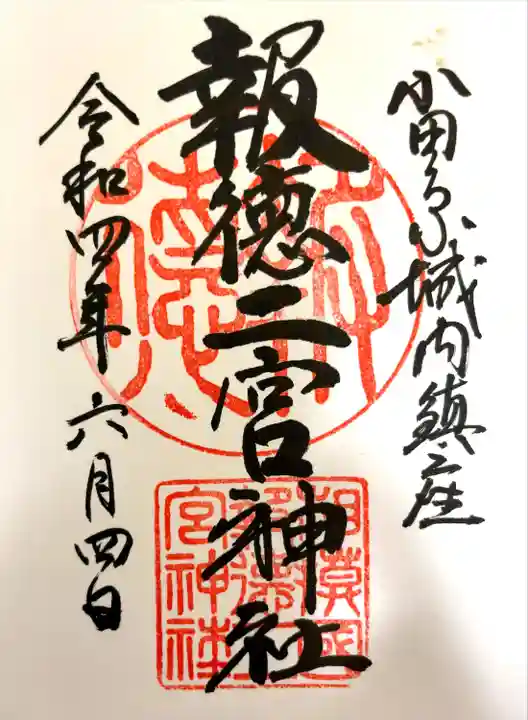 小田原城内鎮座
報徳二宮神社
令和四年六月四日
報徳
相模國
報徳二
宮神社